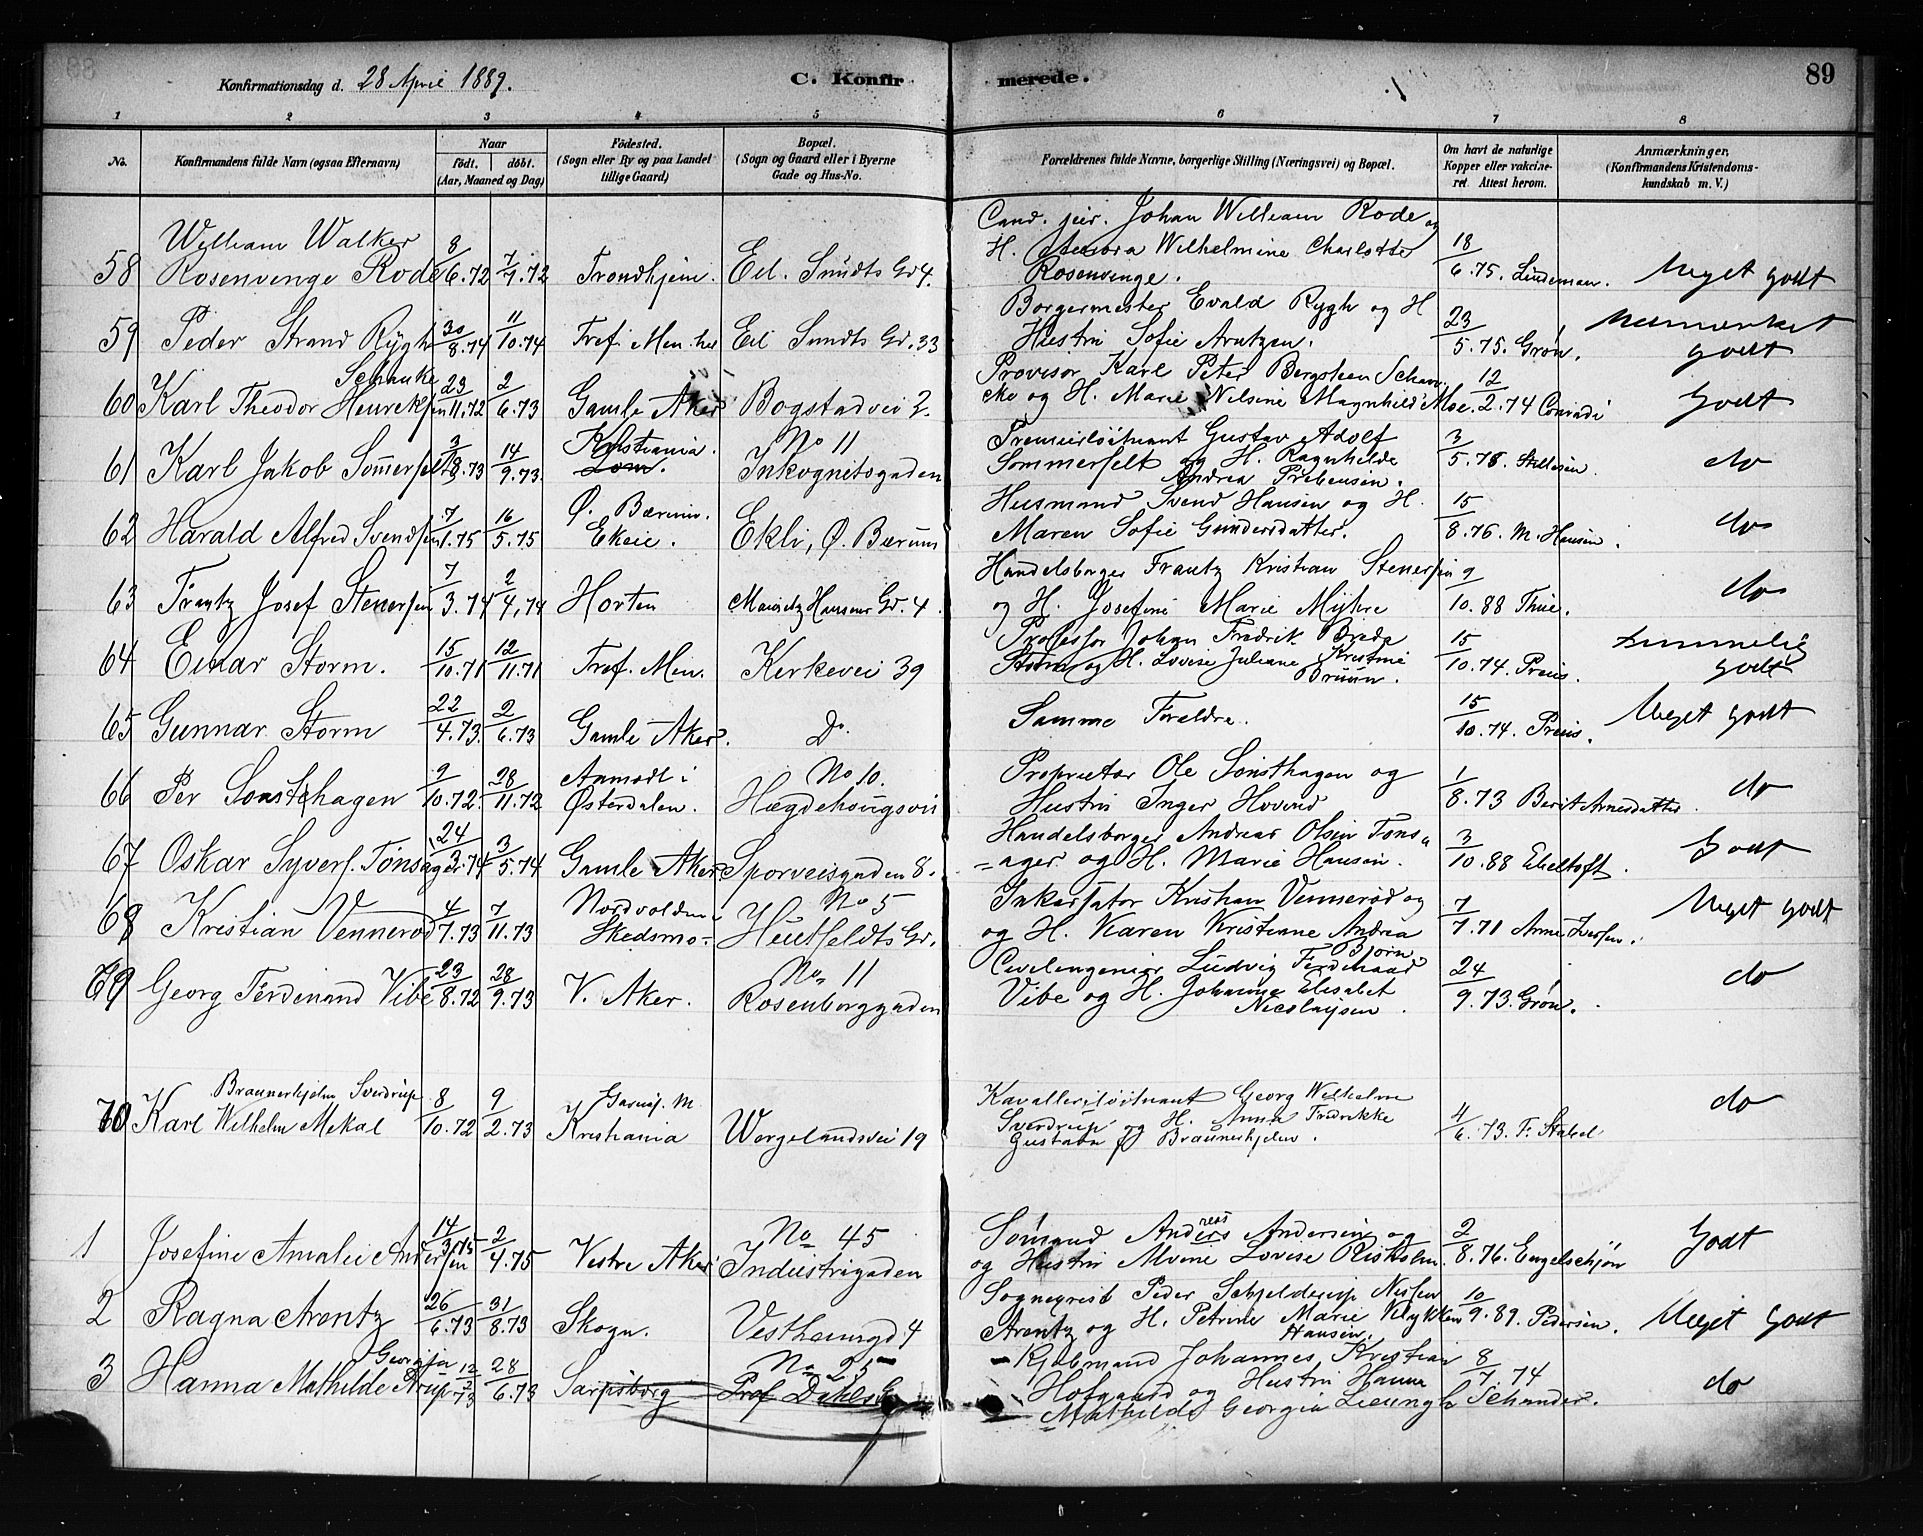 Konfirmationsdag d. 28 April 1889.
C. Konfirmerede.
89
1 2 3 4 5 6 7 8
No.
Konfirmandens fulde Navn (ogsaa Efternavn)
Naar
født. døbt.
(Aar, Maaned og Dag)
Fødested.
(Sogn eller By og paa Landet
tillige Gaard)
Bopæl.
(Sogn og Gaard eller i Byerne
Gade og Hus-No.
Forældrenes fulde Navne, borgerlige Stilling (Næringsvei) og Bopæl.
Om havt de naturlige
Kopper eller vakcine-
ret. Attest herom.
Anmærkninger,
(Konfirmandens Kristendoms-
kundskab m. V.)
William Walker 8 7 Cand. jur. Johan William Rode og
58 Rosenvenge Rode 6.72 7.72 Trondhjem. Eil. Sundts Gd 4. H. Aurora Wilhelmine Charlotte 18
Rosenvenge. 6.75. Lindeman. Meget godt
Borgermester Evald Rygh og H
59 Peder Strand Rygh 30/8.74 11/10.74 Tref. Men.hed Eil Sundts Gd. 33 Hustru Sofie Arntzen. 23/5.75. Grøn. Udmærket
godt
Schanke Provisor Karl Peter Bergsteen Schan-
60 Karl Theodor Henriksen 23/11.72 2/6.73 Gamle Aker Bogstadvei 2. cke og H. Marie Nilsine Magnhild Moe. 12/2.74 Conradi Godt
Kristiania. No 11 Premierløitnant Gustav Adolf
61 Karl Jakob Sømerfelt 3/8.73 14/9.73 Lom. Inkognitogaden Sommerfelt og H. Ragnhilde 3/5.78. do
Andrea Prebensen.
Ø. Bærum. Husmand Svend Hansen og H.
62 Harald Alfred Svendsen 7/1.75 16/5.75 Ekeie. Ekli, Ø. Bærum Maren Sofie Gundersdatter. 15/8.76. M. Hansen. do
Handelsborger Frantz Kristian Stenersen
63 Frantz Josef Stenersen 7/3.74 2/4.74 Horten Mauritz Hansens Gd. 4. og H. Josefine Marie Myhre 9/10.88 Thue. do
Professor Johan Fredrik Breda
64 Einar Storm. 15/10.71 12/11.71 Tref. Men. Kirkevei 39 Storm og H. Lovise Juliane Kristine 15/10.74. Preus. Temmelig
Bruun. godt
65 Gunnar Storm 22/4.73. 2/6.73 Gamle Aker. Do. Samme Foreldre. 15/10.74. Preus. Meget godt
Aamodt i No 10. Proprietær Ole Sønsthagen og
66 Per Sønsthagen 9/10.72. 28/11.72 Østerdalen. Hægdehougsvei Hustru Inger Hovind 1/8.73 Berit Arnesdatter do
Handelsborger Andreas Olsen Tøns-
67 Oskar Syvers. Tønsager 24/3.74 3/5.74 Gamle Aker Sporveisgaden 8. ager og H. Marie Hansen. 3/10.88 Ebeltoft. Godt
Nordvolden i No 5 Inkassator Kristian Vennerød og
68 Kristian Vennerød 4/7.73 7/11.73 Skedsmo. Huitfeldts Gd. og H. Karen Kristiane Andrea 7/7.71 Arne Iversen. Meget godt
Bjørn
No. 11 Civilingeniør Ludvig Ferdinand
69 Georg Ferdinand Vibe 23/8.72 28/9.73 V. Aker. Rosenborggaden Vibe og H. Johanne Elisabet 24/9.73. Grøn. do
Nicolaysen.
Braunerhjelm Sverdrup Garnis. M. Kavalleriløitnant Georg Wilhelm
70 Karl Wilhelm Mekal 8/10.72 9/2.73 Kristiania Wergelandsvei 19 Sverdrup og H. Anna Fredrikke 4/6.73. F. Stabel do
Gustava f Braunerhjelm.
No 45 Sømand Andreas Andersen og
1 Josefine Amalie Andersen 14/3.75 2/4.75 Vestre Aker Industrigaden og Hustru Alvine Lovise Riisholm. 2/8.76. Engelschjøn Godt
Sogneprest Peder Schjelderup Nissen
2 Ragna Arentz 26/6.73 31/8.73 Skogn. Vestheimgd 4 Arentz og H. Petrine Marie Klykken 10/9.89. Pedersen. Meget godt
Hansen.
Georgia No 25 Kjøbmand Johannes Kristian
3 Hanna Mathilde Arup 12/2 73 28/6.73 Sarpsborg Prof Dahls G Hofgaard og Hustru Hanna 8/7.74 do
Mathilde Georgia Lieungh Schander.